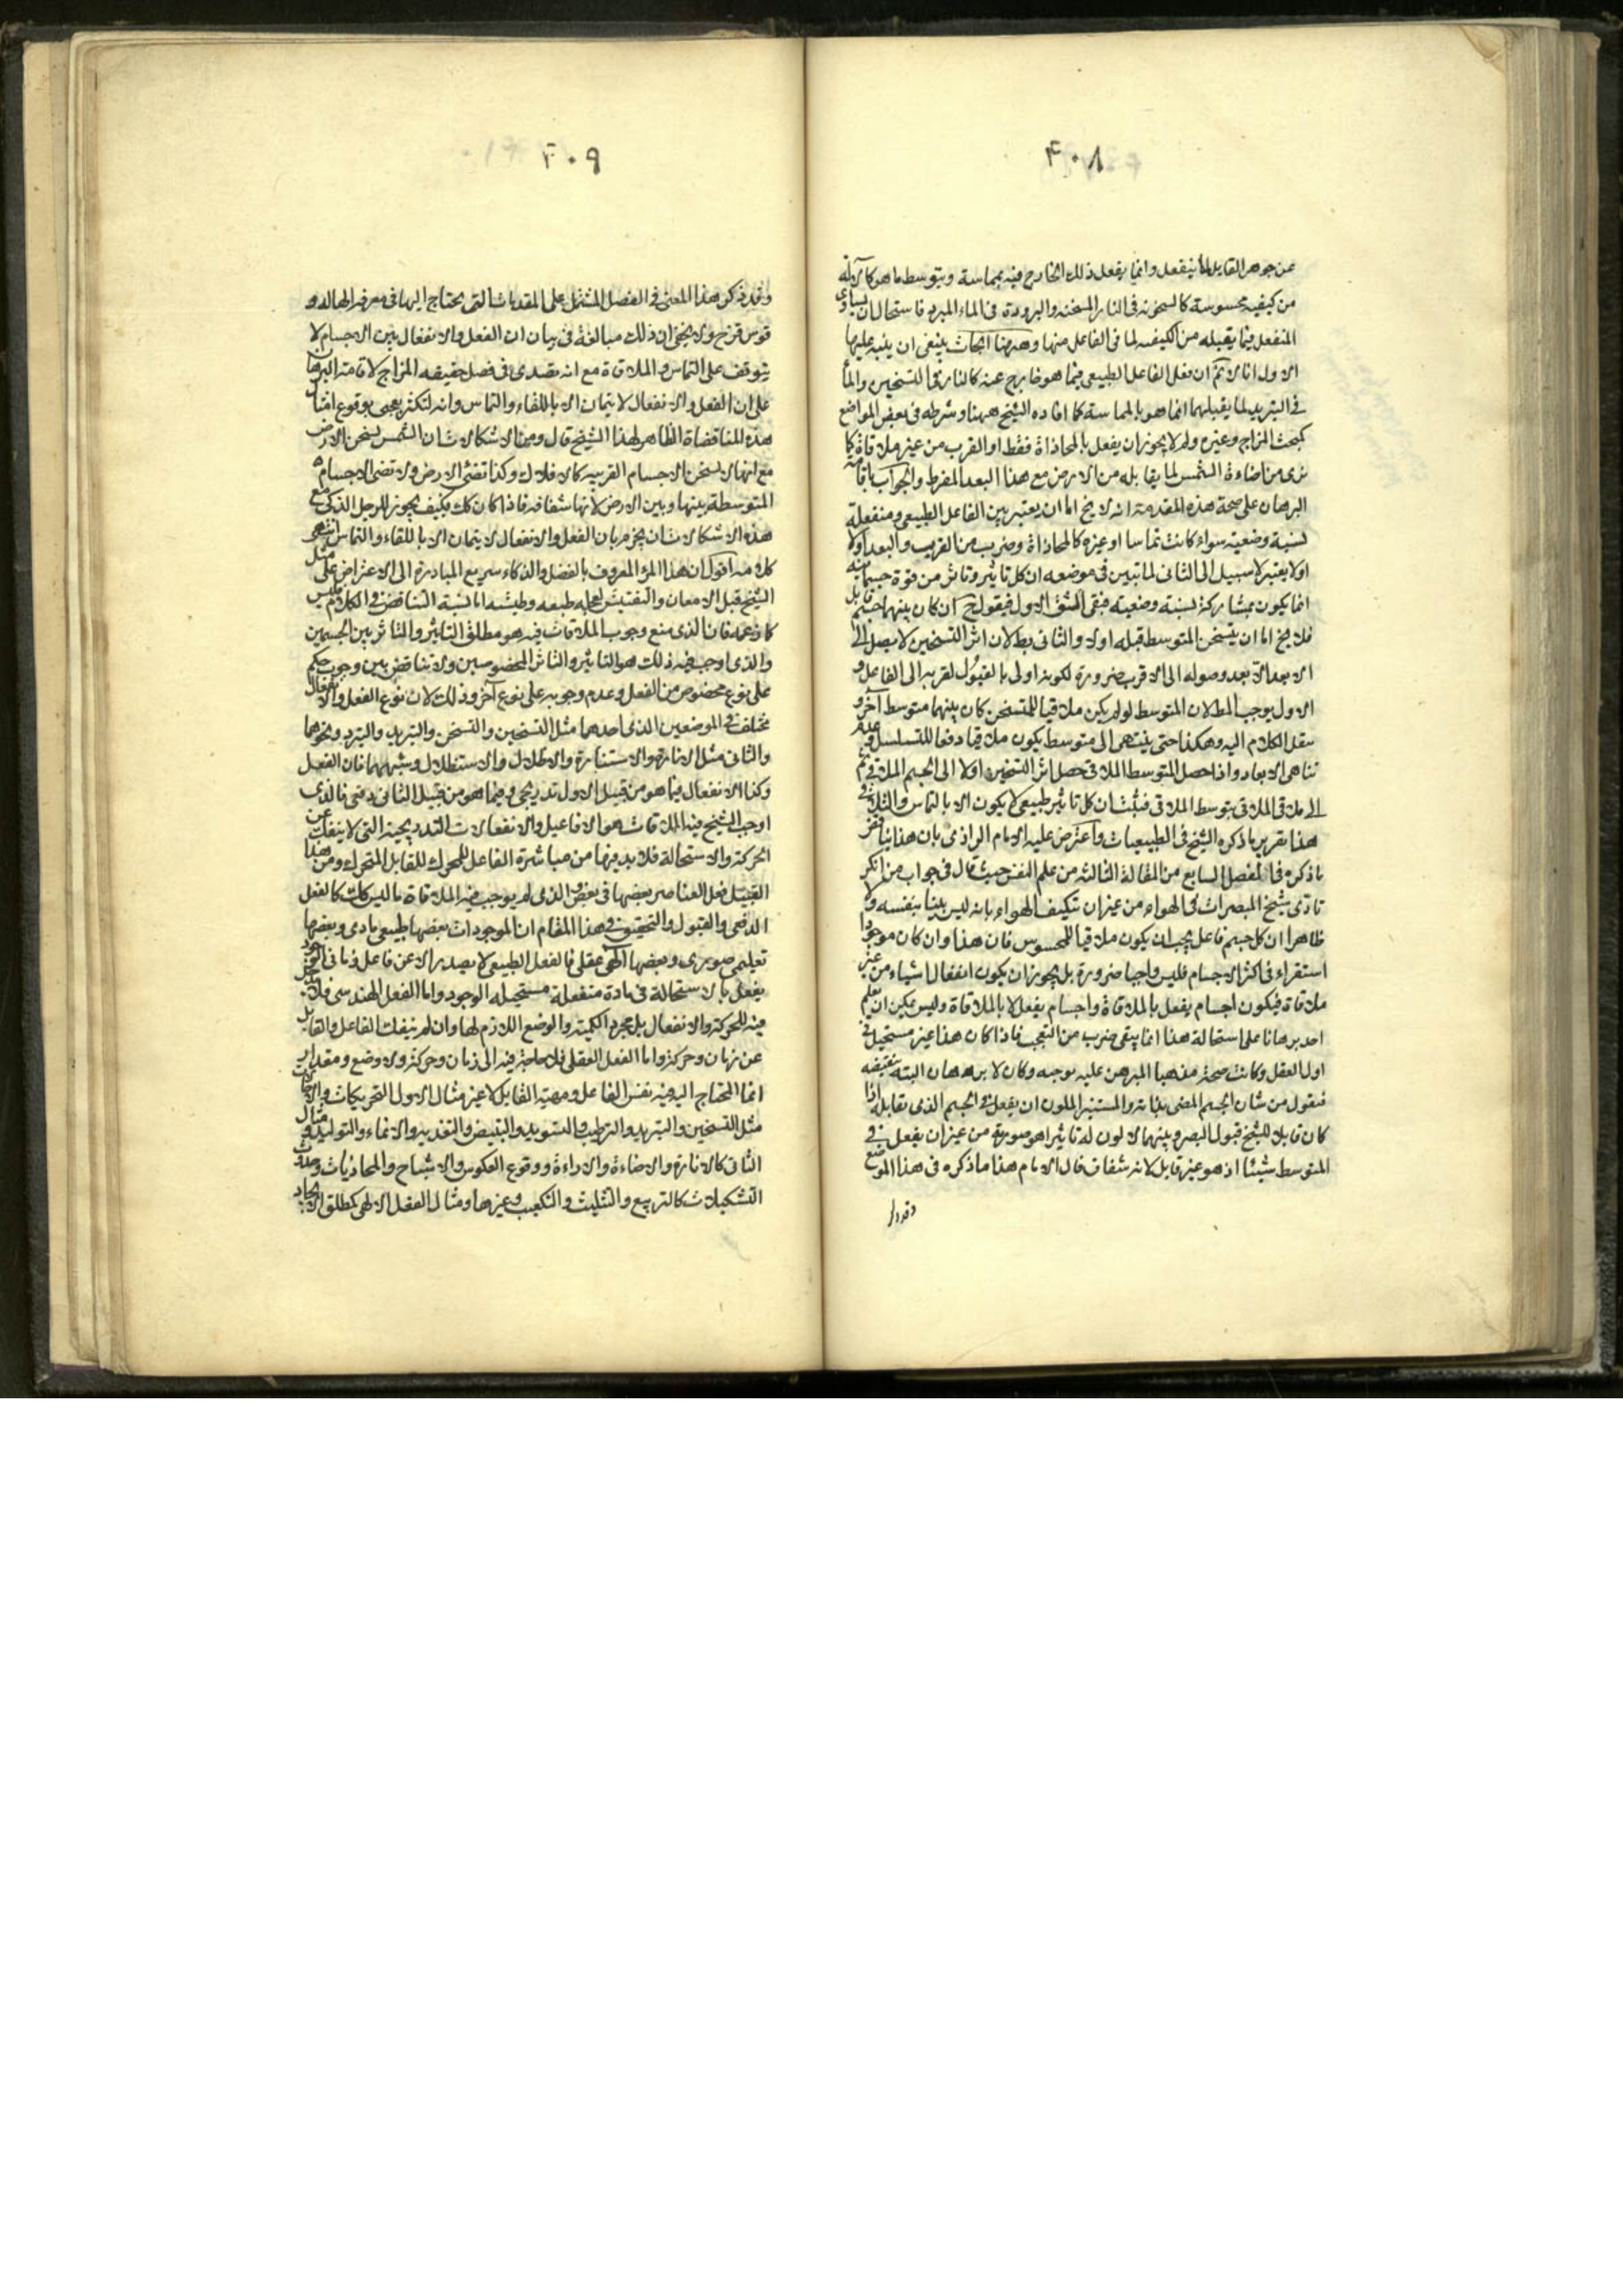 ۴۰۸
عن جوهر القابل لما ينفعل وانما يفعل ذلك الخارج فيه بمماسة وبتوسط ما هو كالآلة
من كيفية محسوسة كالسخونة في النار المسخنة والبرودة في الماء المبرد فاستحالات يساوى
المنفعل فيما يقبله من الكيفية لما في الفاعل منها وههنا ابحاث ينبغى ان ينبه عليها
الاول انا لا نم ان فعل الفاعل الطبيعى فيما هو خارج عنه كالنار في التسخين والماء
في التبريد لما يقبلهما انما هو بالمماسة كما افاده الشيخ ههنا وشرطه في بعض المواضع
كبحث المزاج وغيره ولم لا يجوز ان يفعل بالمحاذاة فقط او القرب من غير ملاقاة كما
نرى من اضاءة الشمس لما يقابله من الارض مع هذا البعد المفرط والجواب باقامة
البرهان على صحة هذه المقدمة انه لا يخ اما ان يعتبر بين الفاعل الطبيعى ومنفعله
نسبة وضعية سواء كانت تماسا او غيره كالمحاذاة وضرب من القرب والبعد اولا
اولا يعتبر لا سبيل الى الثانى لما تبين في موضعه ان كل تاثير وتاثر من قوة جسمانية
انما يكون بمشاركة نسبة وضعية فبقى الشق الاول فيقول ح ان كان بينهما جسم قابل
فلا يخ اما ان يتسخن المتوسط قبله اولا والثانى بط لان اثر التسخين لا يصل الى
الابعد الا بعد وصوله الى الاقرب ضرورة لكونه اولى بالقبول لقربه الى الفاعل و
الاول يوجب المط لان المتوسط لو لم يكن ملاقيا للمتسخن كان بينهما متوسط آخر و
ينقل الكلام اليه وهكذا حتى ينتهى الى متوسط يكون ملاقيا دفعا للتسلسل وعدم
تناهى الابعاد واذا حصل المتوسط الملاقى حصل اثر التسخين اولا الى الجسم الملاقى ثم
الى ملاقى الملاقى بتوسط الملاقى فثبت ان كل تاثير طبيعى لا يكون الا بالتماس والتلاقى
هذا تقرير ما ذكره الشيخ في الطبيعيات واعترض عليه الامام الرازى بان هذا يناقض
ما ذكره في الفصل السابع من المقالة الثالثة من علم النفس حيث قال في جواب من انكر
تادى شبح المبصرات في الهواء من غير ان تتكيف الهواء بانه ليس بينا بنفسه ولا
ظاهرا ان كل جسم فاعل يجب ان يكون ملاقيا للمحسوس فان هذا وان كان موجودا
استقراء في اكثر الاجسام فليس واجبا ضرورة بل يجوز ان يكون انفعال اشياء من غير
ملاقاة فيكون اجسام يفعل بالملاقاة واجسام يفعل لا بالملاقاة وليس يمكن ان يعلم
احد برهانا على استحالة هذا انما يبقى ضرب من التعجب فاذا كان هذا غير مستحيل في
اول العقل وكانت صحة مذهبنا المبرهن عليه توجبه وكان لا برهان البتة ينقضه
فنقول من شان الجسم المضى بذاته والمستنير الملون ان يفعل في الجسم الذى يقابله اذا
كان قابلا للشبح قبول البصر وبينهما لا لون له تاثيرا هو صورة من غير ان يفعل في
المتوسط شيئا اذ هو غير قابل لانه شفاف قال الامام هذا ما ذكره في هذا الموضع
۴۰۹
وقد ذكر هذا المعنى في الفصل المشتمل على المقدمات التى يحتاج اليها في معرفة الهالة و
قوس قزح ولا يخفى ان ذلك مبالغة في بيان ان الفعل والانفعال بين الاجسام لا
يتوقف على التماس والملاقاة مع انه تصدى في فصل حقيقة المزاج لاقامة البرهان
على ان الفعل والانفعال لا يتمان الا باللقاء والتماس وانه لتكثر تعجبى بوقوع امثال
هذه المناقضاة الظاهرة لهذا الشيخ قال ومن الاشكالات ان الشمس تسخن الارض
مع انها لا تسخن الاجسام القريبة كالافلاك وكذا تضئ الارض ولا تضئ الاجسام
المتوسطة بينها وبين الارض لانها شفافة فاذا كان كك فكيف يجوز للرجل الذكى مع
هذه الاشكالات ان يجزم بان الفعل والانفعال لا يتمان الا باللقاء والتماس انتهى
كلامه اقول ان هذا المرء المعروف بالفضل والذكاء سريع المبادرة الى الاعتراض على مثل
الشيخ قبل الامعان والتفتيش لعجلة طبعه وطيشه اما نسبة التناقض في الكلام فليس
كما زعمه فان الذى منع وجوب الملاقات فيه هو مطلق التاثير والتاثر بين الجسمين
والذى اوجب فيه ذلك هو التاثير والتاثر المخصوصين ولا تناقض بين وجوب حكم
على نوع مخصوص من الفعل وعدم وجوبه على نوع آخر وذلك لان نوع الفعل والانفعال
مختلف في الموضعين الذى احدهما مثل التسخين والتسخن والتبريد والتبرد ونحوهما
والثانى مثل الانارة والاستنارة والاظلال والاستظلال وشبههما فان الفعل
وكذا الانفعال فيما هو من قبيل الاول تدريجى وفيما هو من قبيل الثانى دفعى فالذى
اوجب الشيخ فيه الملاقات هو الافاعيل والانفعالات التدريجية التى لا ينفك عن
الحركة والاستحالة فلا بد فيها من مباشرة الفاعل المحرك للقابل المتحرك ومن هذا
القبيل فعل العناصر بعضها في بعض والذى لم يوجب فيه الملاقاة ما ليس كك كالفعل
الدفعى والقبول والتحقيق في هذا المقام ان الموجودات بعضها طبيعى مادى وبعضها
تعليمى صورى وبعضها الهى عقلى فالفعل الطبيعى لا يصدر الا عن فاعل
يفعل بالاستحالة في مادة منفعلة مستحيلة الوجود واما الفعل الهندسى فلا مدخل
فيه للحركة والانفعال بل مجرد الكمية والوضع اللازم لها وان لم ينفك الفاعل والقابل
عن زمان وحركة واما الفعل العقلى فلا حاجة فيه الى زمان وحركة ولا وضع ومقدار
انما المحتاج اليه فيه نفس الفاعل ومهية القابل لا غير مثال الاول التحريكات والاحالات
مثل التسخين والتبريد والترطيب والتسويد والتبييض والتغذية والانماء والتوليد ومثال
الثانى كالانارة والاضاءة والاراءة ووقوع العكوس والاشباح والمحاذيات وحدوث
التشكيلات كالتربيع والتثليث والتكعيب وغيرها ومثال الفعل الالهى كمطلق الايجاد